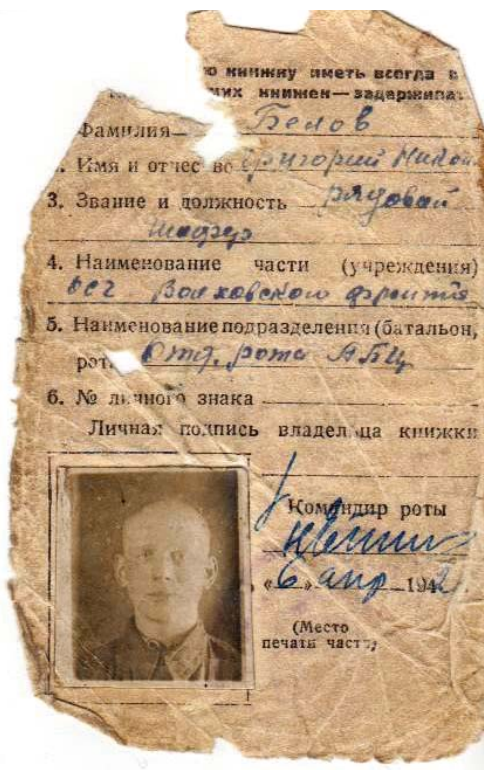 ю книжку иметь всегда п
них книжек—задерживат
Фамилия Белов
. Имя и отчес во Григорий Никол
3. Звание и должность рядовой
шофер
4. Наименование части (учреждения)
Волховского фронта
5. Наименование подразделения (батальон,
рот Отд. рота АБЦ
6. № личного знака
Личная подпись владельца книжки
Командир роты
«6» апр 1942
(Место
печати части)